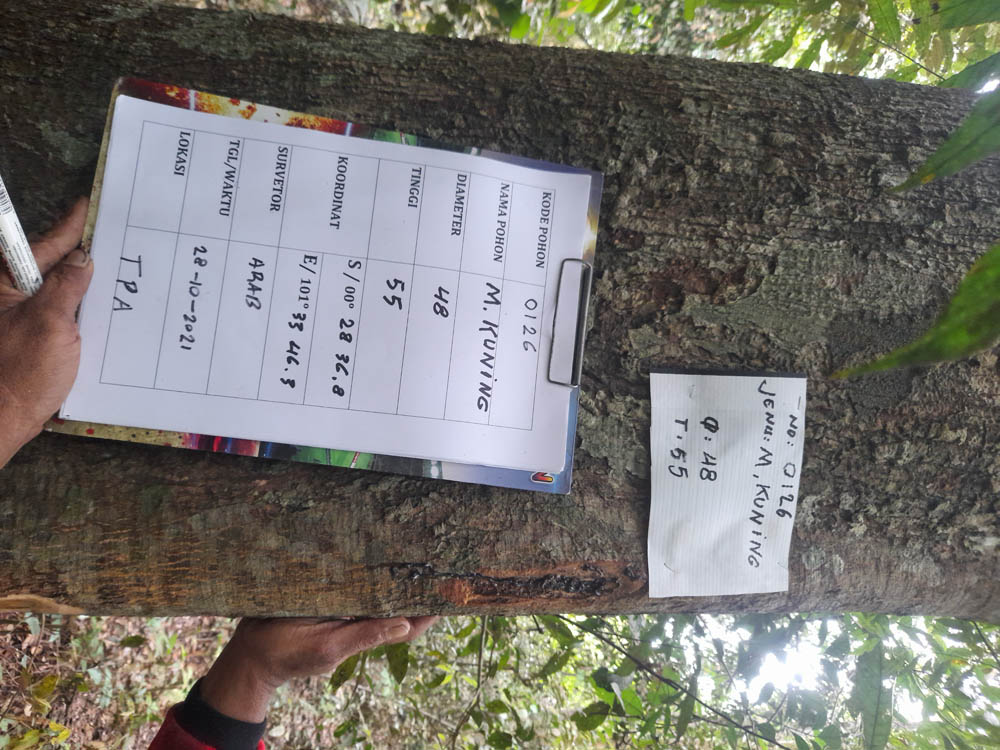 NO: 0126
JENIS: M. KUNING
Φ: 48
T: 55
KODE POHON 0126
NAMA POHON M. KUNING
DIAMETER 48
TINGGI 55
KOORDINAT S / 00° 28 36,8
E/ 101° 33 46.3
SURVETOR ARAB
TGL/WAKTU 28-10-2021
LOKASI TPA